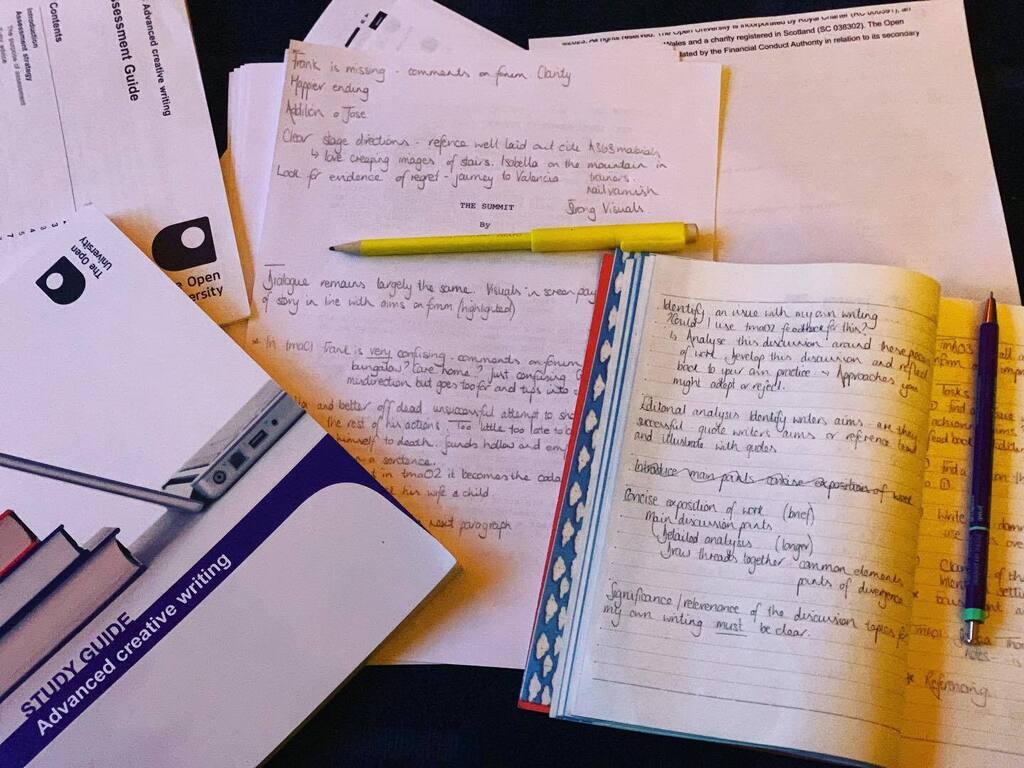 Contents
Introduction
Assessment strategy
The purpose of assessment
Advanced creative writing
Assessment Guide
The Open
University
The Open
University
STUDY GUIDE
Advanced creative writing
The Open University is incorporated by Royal Charter (RC 000391), an
Wales and a charity registered in Scotland (SC 038302). The Open
lated by the Financial Conduct Authority in relation to its secondary
Frank is missing - comments on forum Clarity
Happier ending
Addition o Jose
Clear stage directions - refence well laid out cite A363 materials
↳ love creeping images of stairs. Isabella on the mountain in
trainers.
Look for evidence of regret - journey to Valencia
nail varnish
THE SUMMIT
Strong Visuals
By
Dialogue remains largely the same. Visuals in screen play
of story in line with aims on forum (highlighted)
* In tma01 Frank is very confusing - comments on forum
bungalow? Care home? Just confusing
misdirection but goes too far and tips into
and better off dead unsuccessful attempt to sho
the rest of his actions. Too little too late to
himself to death. Sounds hollow and em
a sentence.
in tma02 it becomes the coda
his wife & child
next paragraph
Identify an issue with my own writing
Could I use tma02 feedback for this?
↳ Analyse this discussion around these pieces
of work develop this discussion and reflect
back to your own practice. Approaches you
might adapt or reject.
Editorial analysis Identify writers aims - are they
successful quote writers aims or reference
and illustrate with quotes
Introduce main points concise exposition of work
Concise exposition of work (brief)
Main discussion points
Detailed analysis (longer)
Draw threads together common elements
points of divergence
Significance / relevenance of the discussion topics for
my own writing must be clear.
tma03
Tasks
find a
* Referencing